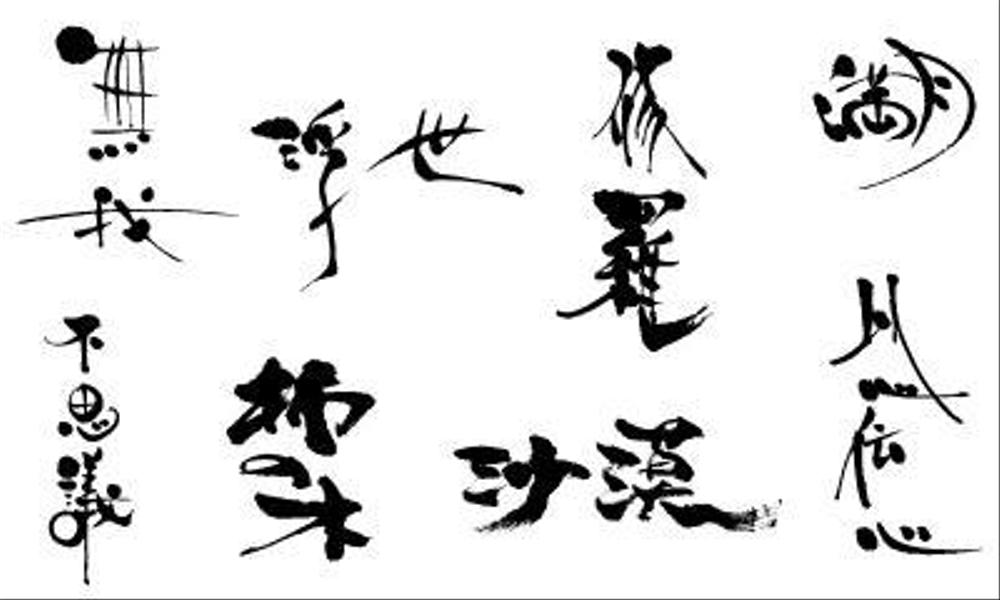 無我
浮世
修羅
満月
不思議
沙漠
以心伝心